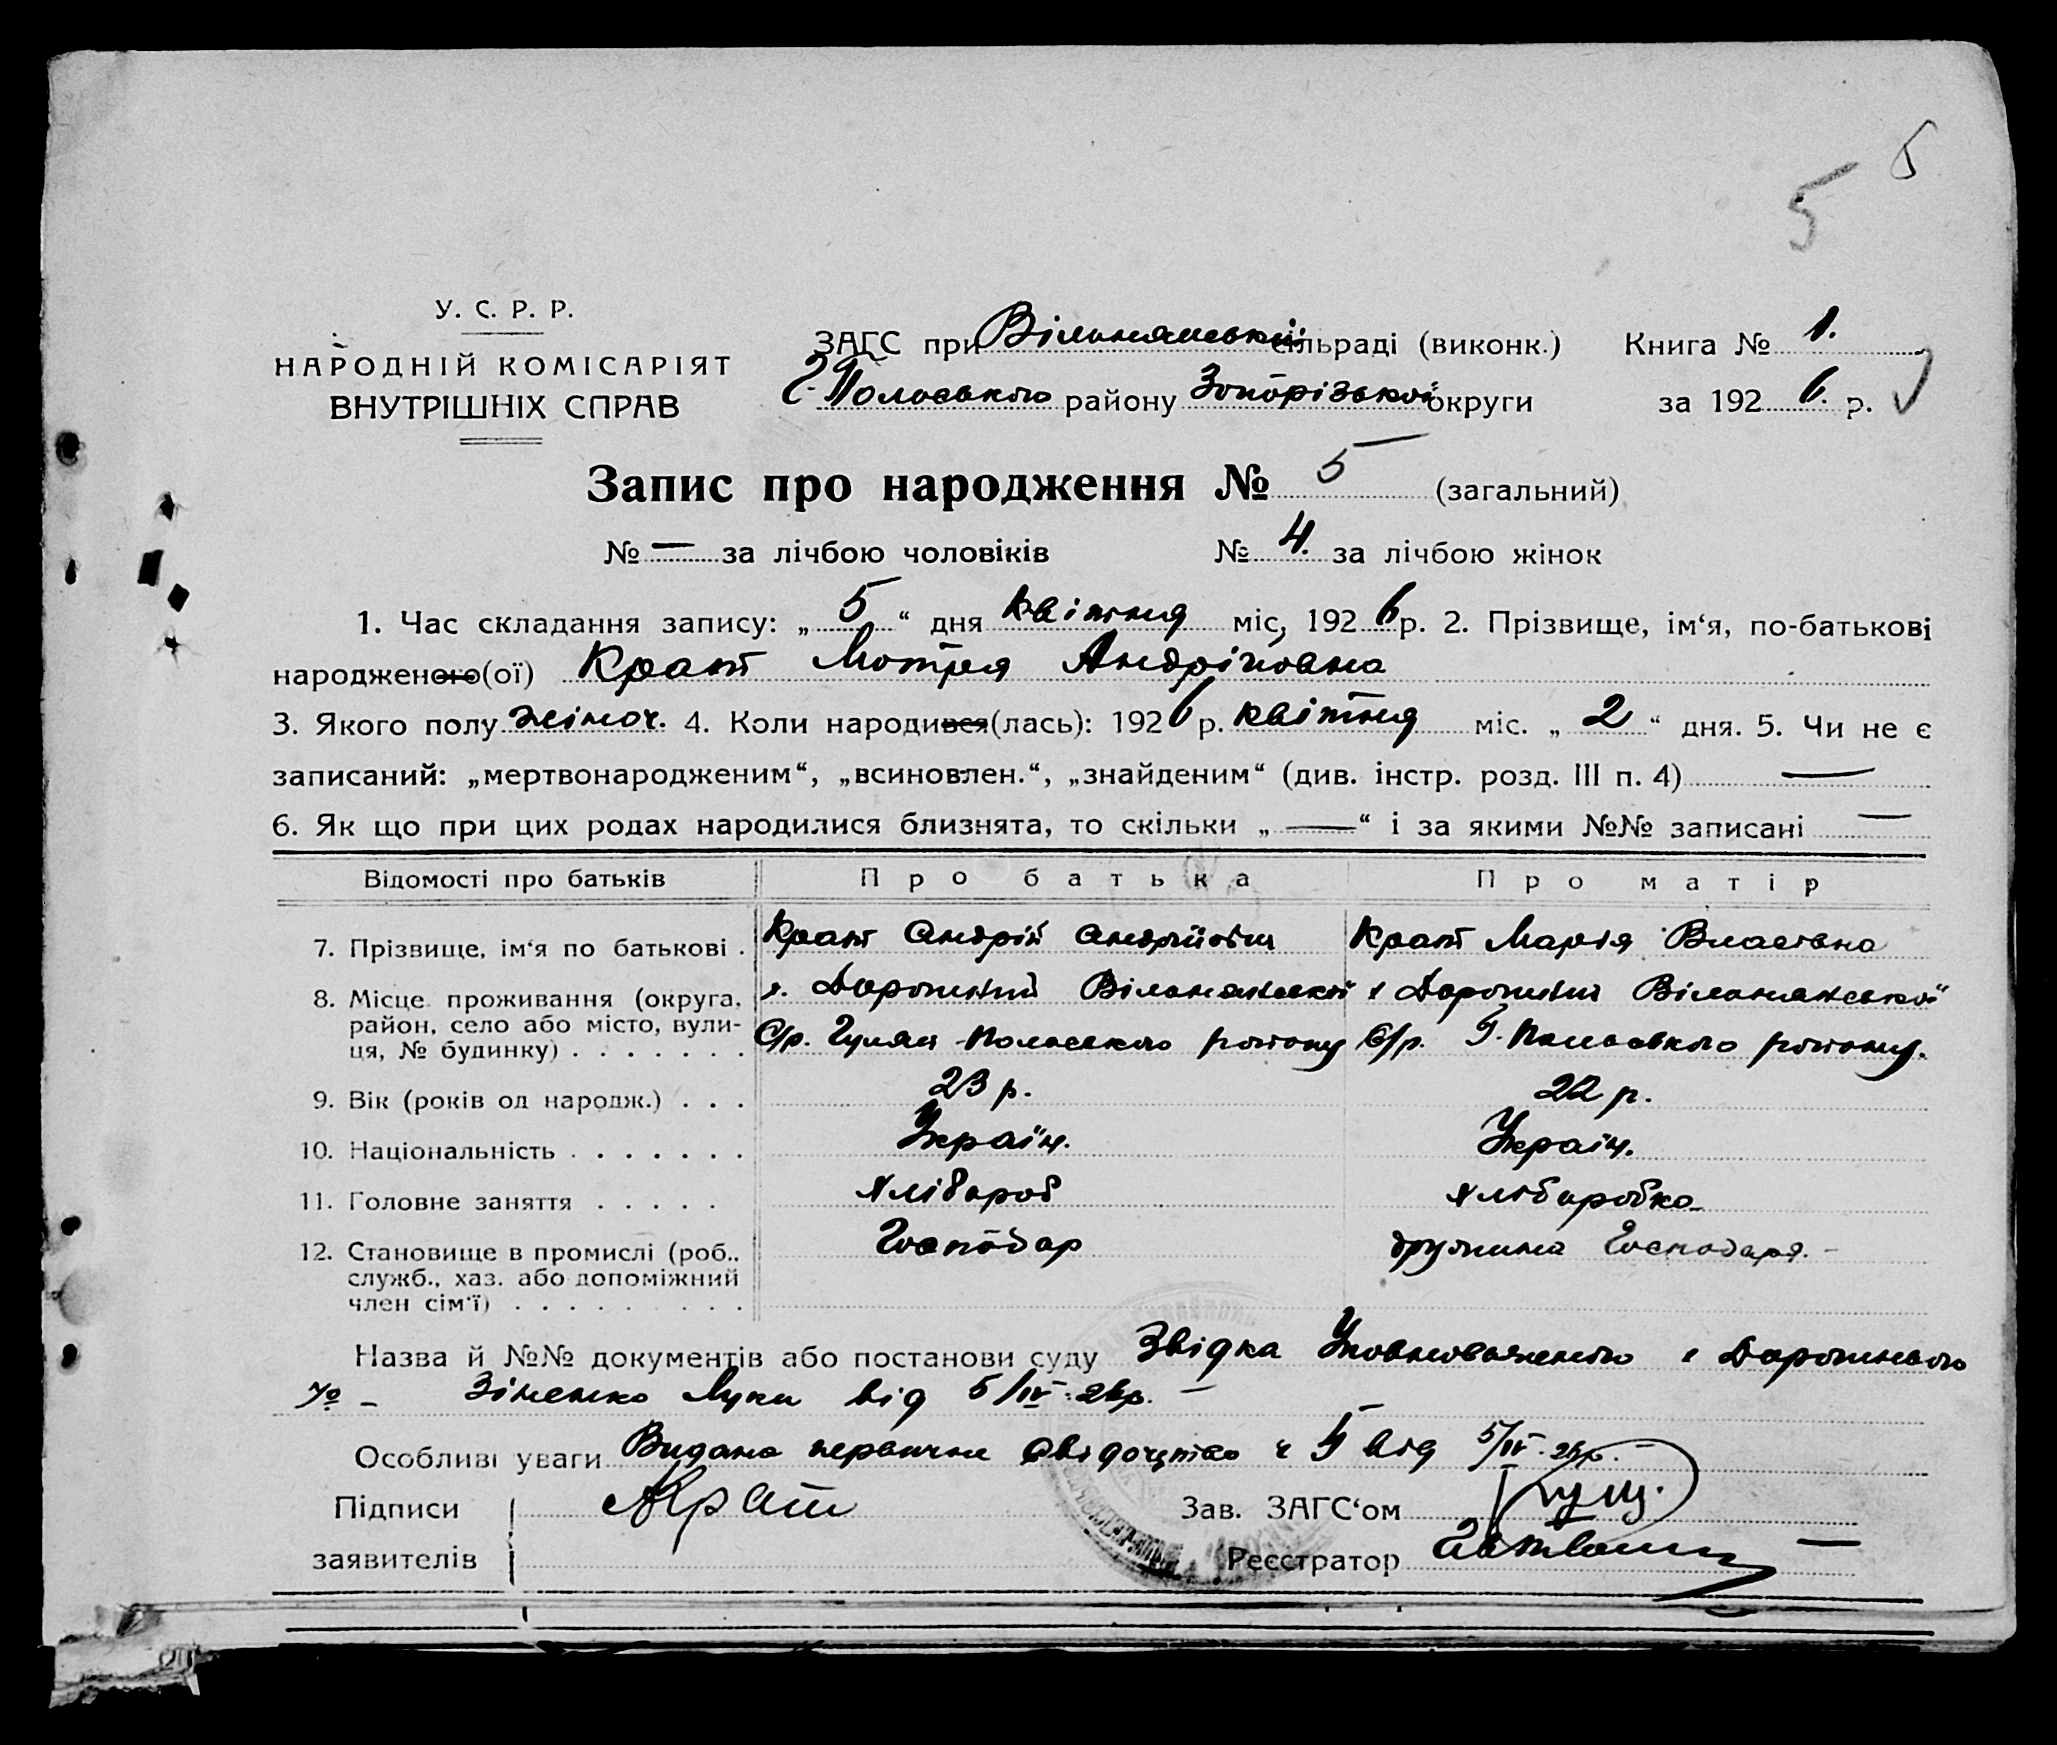 5
5
У. С. Р. Р.
НАРОДНІЙ КОМІСАРІЯТ
ВНУТРІШНІХ СПРАВ
ЗАГС при Вільнянській сільраді (виконк.) Книга № 1.
Г. Польського району Запорізької округи за 1926. р.
Запис про народження № 5 (загальний)
№ — за лічбою чоловіків № 4. за лічбою жінок
1. Час складання запису: „5“ дня квітня міс, 1926 р. 2. Прізвище, ім‘я, по-батькові
народженого(ої) Крат Мотря Андріївна
3. Якого полу жіноч. 4. Коли народився(лась): 1926 р. квітня міс. „2“ дня. 5. Чи не є
записаний: „мертвонародженим“, „всиновлен.“, „знайденим“ (див. інстр. розд. III п. 4) —
6. Як що при цих родах народилися близнята, то скільки „—“ і за якими №№ записані —
Відомості про батьків Про батька Про матір
7. Прізвище, ім‘я по батькові . Крат Андрій Андрійович Крат Марія Власівна
8. Місце проживання (округа, х. Дорожний Вільнянської х Дорожний Вільнянської
район, село або місто, вули- С/р. Гуляй-Польського району С/р. Г. Польського району.
ця, № будинку) . . . . . . .
9. Вік (років од народж.) . . . 23 р. 22 р.
10. Національність . . . . . . . Україн. Україн.
11. Головне заняття . . . . . Хлібороб Хліборобка
12. Становище в промислі (роб., Господар дружина Господаря. -
служб., хаз. або допоміжний
член сім‘ї) . . . . . . . . .
Назва й №№ документів або постанови суду Звідка Уповноваженого х Дорожнього
Зіненко Луки від 5/IV-26р. —
Особливі уваги Видано первичне свідоцтво ч 5 від 5/IV-26р. —
Підписи АКрат Зав. ЗАГС‘ом
заявителів Реєстратор